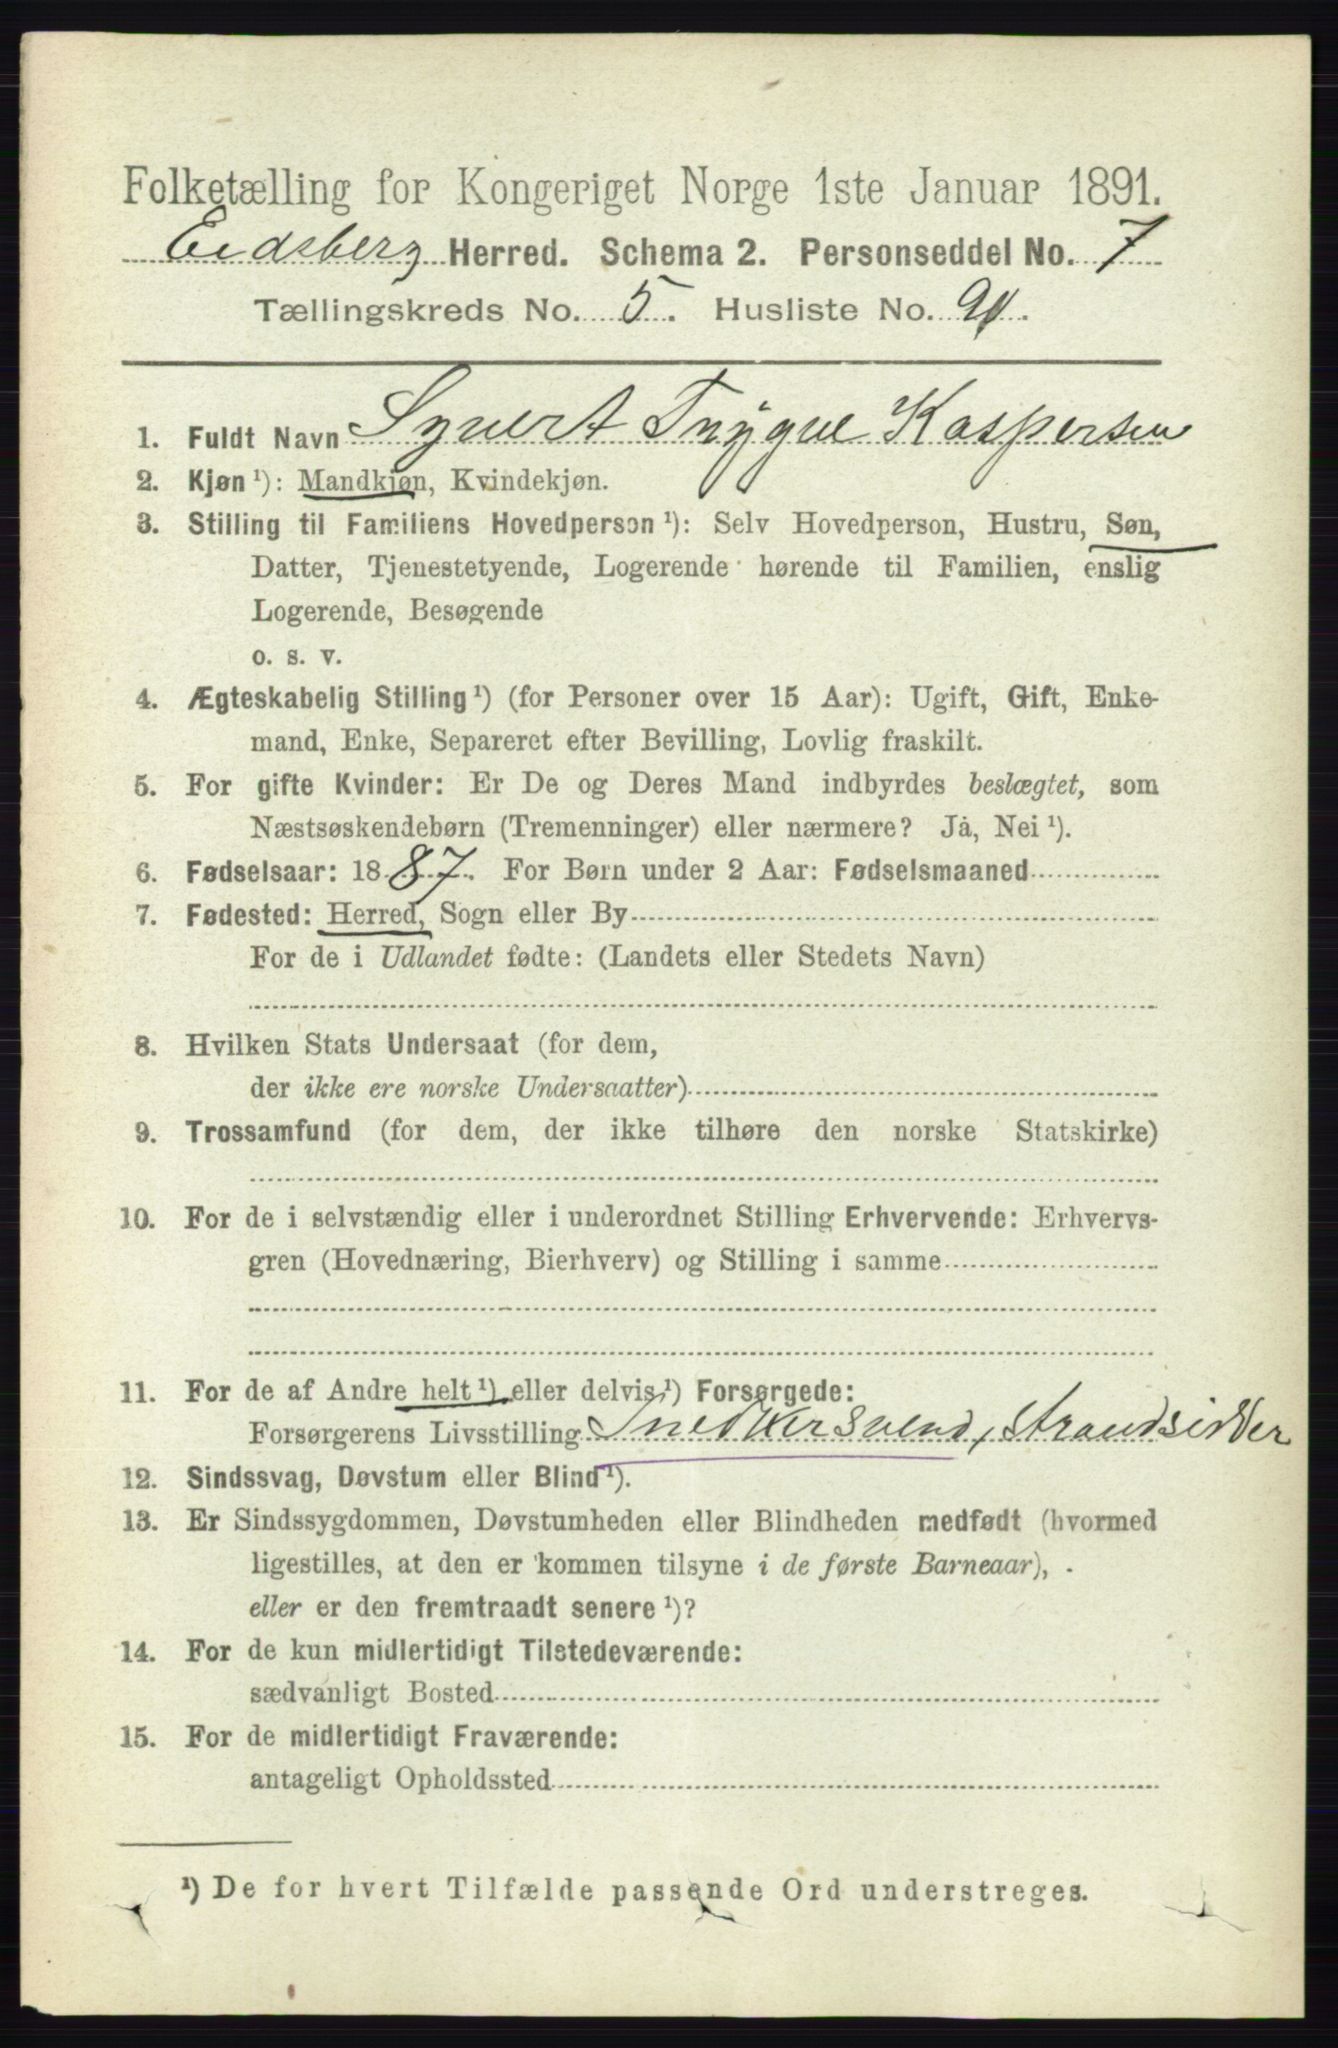 Folketælling for Kongeriget Norge 1ste Januar 1891.
Eidsberg Herred. Schema 2. Personseddel No. 7
Tællingskreds No. 5. Husliste No. 90.
1. Fuldt Navn Syvert Trygve Kaspersen
2. Kjøn ¹): Mandkjøn, Kvindekjøn.
3. Stilling til Familiens Hovedperson ¹): Selv Hovedperson, Hustru, Søn,
Datter, Tjenestetyende, Logerende hørende til Familien, enslig
Logerende, Besøgende
o. s. v.
4. Ægteskabelig Stilling ¹) (for Personer over 15 Aar): Ugift, Gift, Enke-
mand, Enke, Separeret efter Bevilling, Lovlig fraskilt.
5. For gifte Kvinder: Er De og Deres Mand indbyrdes beslægtet, som
Næstsøskendebørn (Tremenninger) eller nærmere? Ja, Nei ¹).
6. Fødselsaar: 1887. For Børn under 2 Aar: Fødselsmaaned
7. Fødested: Herred, Sogn eller By
For de i Udlandet fødte: (Landets eller Stedets Navn)
8. Hvilken Stats Undersaat (for dem,
der ikke ere norske Undersaatter)
9. Trossamfund (for dem, der ikke tilhøre den norske Statskirke)
10. For de i selvstændig eller i underordnet Stilling Erhvervende: Erhvervs-
gren (Hovednæring, Bierhverv) og Stilling i samme
11. For de af Andre helt ¹) eller delvis ¹) Forsørgede:
Forsørgerens Livsstilling Snedkersvend, Strandsidder
12. Sindssvag, Døvstum eller Blind ¹).
13. Er Sindssygdommen, Døvstumheden eller Blindheden medfødt (hvormed
ligestilles, at den er kommen tilsyne i de første Barneaar),
eller er den fremtraadt senere ¹)?
14. For de kun midlertidigt Tilstedeværende:
sædvanligt Bosted
15. For de midlertidigt Fraværende:
antageligt Opholdssted
¹) De for hvert Tilfælde passende Ord understreges.